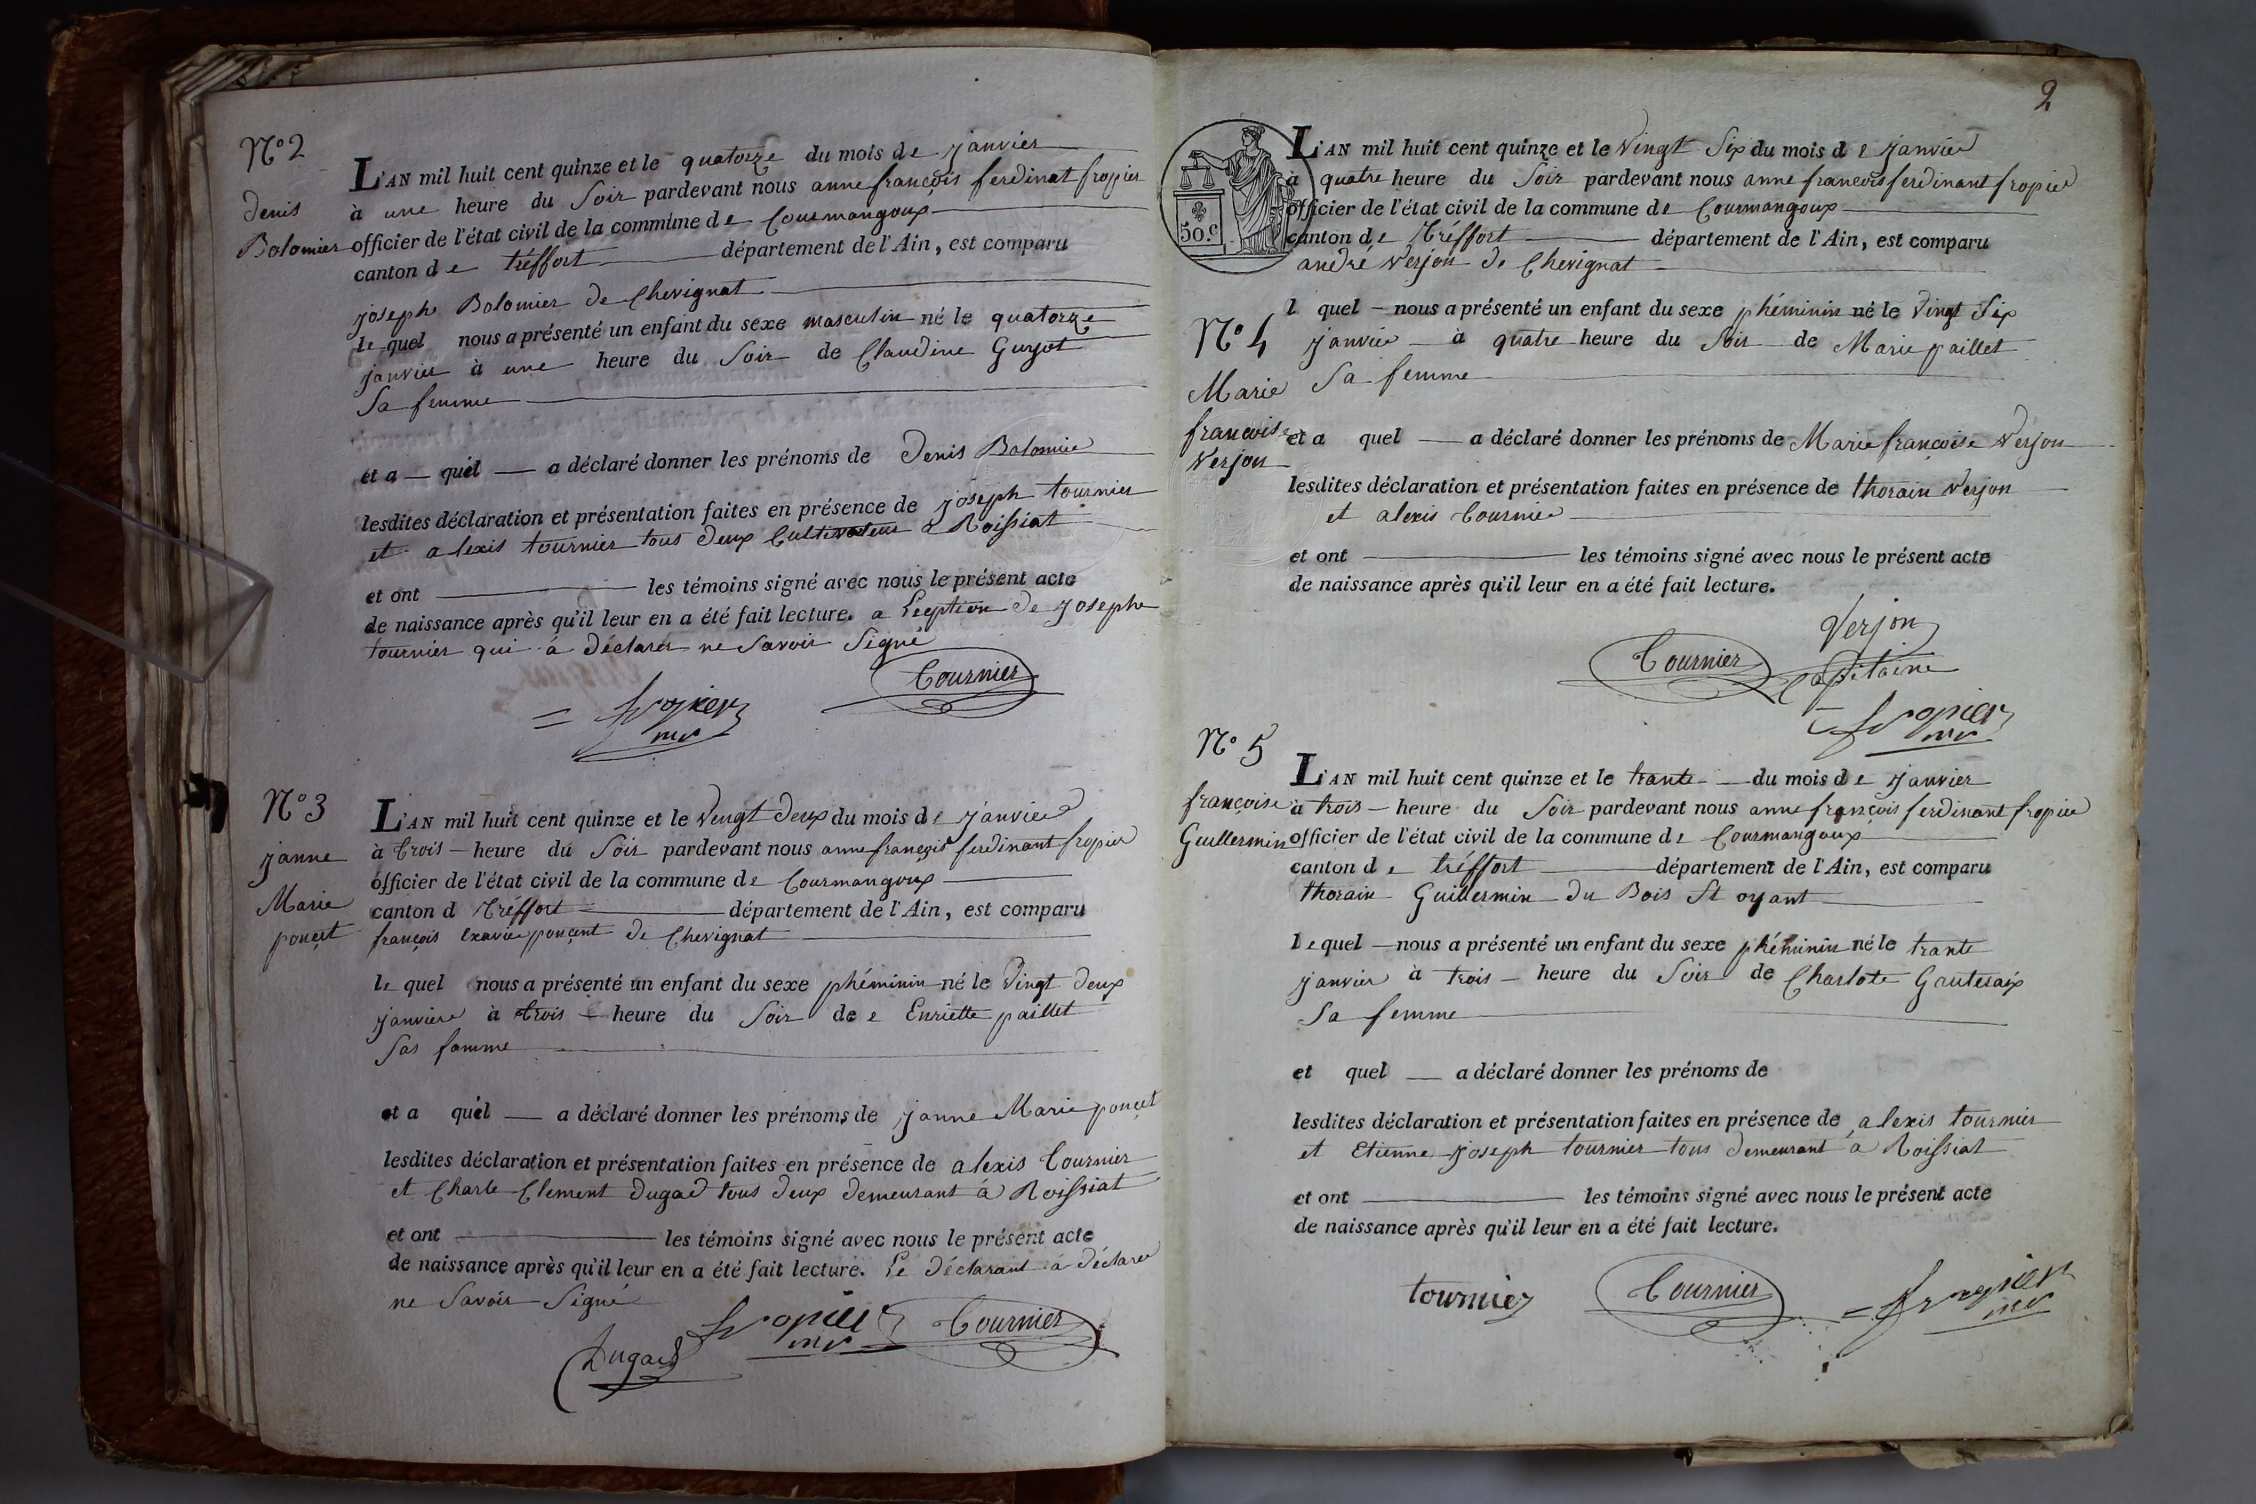 N° 2
denis
Bolomier
L'AN mil huit cent quinze et le quatorze du mois de janvier
à une heure du Soir pardevant nous anne françois ferdinat fropier
officier de l'état civil de la commune de Courmangoux
canton de tréffort département de l'Ain, est comparu
joseph Bolomier de Chevignat
le quel nous a présenté un enfant du sexe masculin né le quatorze
janvier à une heure du Soir de Claudine Guyot
Sa femme
et a quel a déclaré donner les prénoms de Denis Bolomier
lesdites déclaration et présentation faites en présence de joseph tournier
et alexis tournier tous deux Cultivateur a Roissiat
et ont les témoins signé avec nous le présent acte
de naissance après qu'il leur en a été fait lecture. a Leeption de joseph
tournier qui à déclarer ne Savoir Signé
Tournier
fropier
mr
N° 3
janne
Marie
ponçet
L'AN mil huit cent quinze et le Vingt deux du mois de janvier
à trois heure du Soir pardevant nous anne françois ferdinant fropier
officier de l'état civil de la commune de Courmangoux
canton d Tréffort département de l'Ain, est comparu
françois Exavier ponçent de Chevignat
le quel nous a présenté un enfant du sexe phéminin né le Vingt deux
janvier à trois heure du Soir de e Enriette paillet
Sas famme
et a quel a déclaré donner les prénoms de janne Marie ponçet
lesdites déclaration et présentation faites en présence de alexis Tournier
et Charle Clement Dugad tous deux demeurant á Roissiat
et ont les témoins signé avec nous le présent acte
de naissance après qu'il leur en a été fait lecture. Le déclarant a déclare
ne Savoir Signé
fropier
mr
Tournier
Dugad
2
50.c
L'AN mil huit cent quinze et le Vingt Six du mois d e janvier
à quatre heure du Soir pardevant nous anne francois ferdinant fropier
officier de l'état civil de la commune de Courmangoux
canton de Tréffort département de l'Ain, est comparu
andré Verjon de Chevignat
N° 4
Marie
francoise
Verjon
l quel nous a présenté un enfant du sexe phéminin né le Vingt Six
janvier à quatre heure du Soir de Marie paillet
Sa femme
et a quel a déclaré donner les prénoms de Marie françoise Verjon
lesdites déclaration et présentation faites en présence de thorain Verjon
et alexis Tournier
et ont les témoins signé avec nous le présent acte
de naissance après qu'il leur en a été fait lecture.
Verjon
Tournier
Capitaine
fropier
mr
N° 5
françoise
Guillermin
L'AN mil huit cent quinze et le trante du mois de janvier
à trois heure du Soir pardevant nous anne françois ferdinant fropier
officier de l'état civil de la commune de Courmangoux
canton d e tréffort département de l'Ain, est comparu
thorain Guillermin du Bois St oyant
le quel nous a présenté un enfant du sexe phéminin né le trante
janvier à trois heure du Soir de Charlote Gauteraix
Sa femme
et quel a déclaré donner les prénoms de
lesdites déclaration et présentation faites en présence de alexis tournier
et Etienne joseph tournier tous demeurant à Roissiat
et ont les témoins signé avec nous le présent acte
de naissance après qu'il leur en a été fait lecture.
tournier
Tournier
fropier
mr